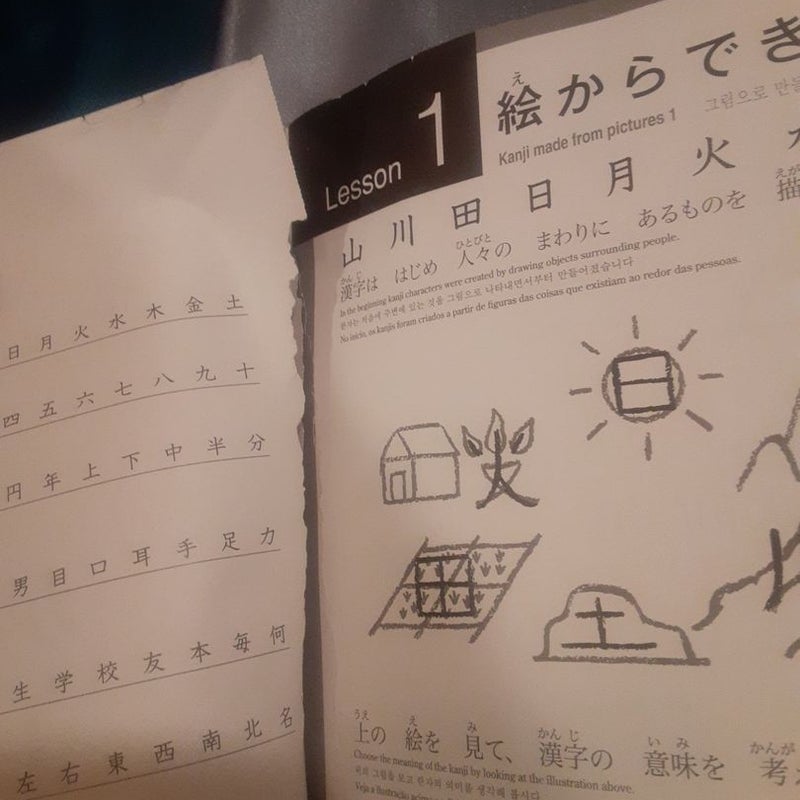 日 月 火 水 木 金 土
四 五 六 七 八 九 十
円 年 上 下 中 半 分
男 目 口 耳 手 足 力
生 学 校 友 本 毎 何
左 右 東 西 南 北 名
Lesson 1
え
絵からでき
Kanji made from pictures 1 그림으로 만들
山 川 田 日 月 火
かんじ ひとびと えが
漢字は はじめ 人々の まわりに あるものを 描
In the beginning kanji characters were created by drawing objects surrounding people.
한자는 처음에 주변에 있는 것을 그림으로 나타내면서부터 만들어졌습니다
No início, os kanjis foram criados a partir de figuras das coisas que existiam ao redor das pessoas.
日
木
田
土
うえ え み かんじ いみ かんが
上の 絵を 見て、 漢字の 意味を 考
Choose the meaning of the kanji by looking at the illustration above.
위의 그림을 보고 한자의 의미를 생각해 봅시다.
Veja a ilustração